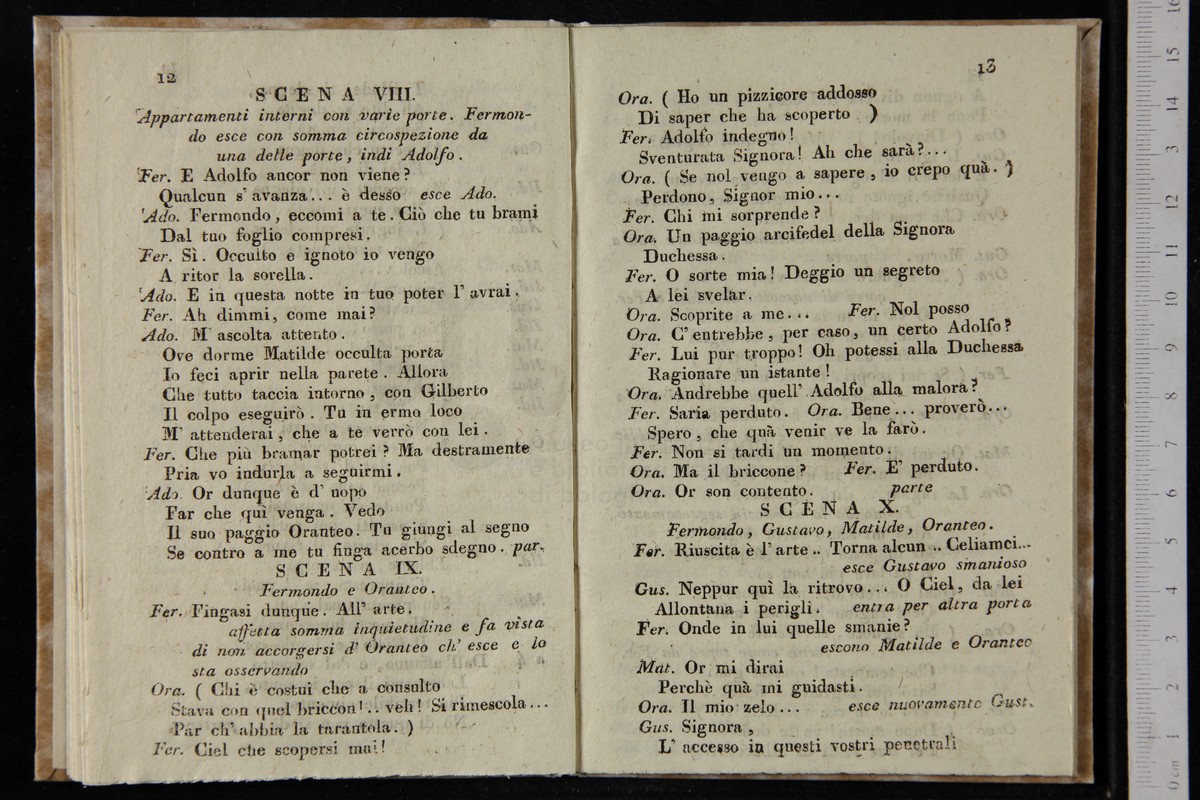 12
SCENA VIII.
Appartamenti interni con varie porte. Fermon-
do esce con somma circospezione da
una delle porte, indi Adolfo.
Fer. E Adolfo ancor non viene?
Qualcun s' avanza... è desso esce Ado.
Ado. Fermondo, eccomi a te. Ciò che tu brami
Dal tuo foglio compresi.
Fer. Sì. Occulto e ignoto io vengo
A ritor la sorella.
Ado. E in questa notte in tuo poter l' avrai.
Fer. Ah dimmi, come mai?
Ado. M' ascolta attento.
Ove dorme Matilde occulta porta
Io feci aprir nella parete. Allora
Che tutto taccia intorno, con Gilberto
Il colpo eseguirò. Tu in ermo loco
M' attenderai, che a te verrò con lei.
Fer. Che più bramar potrei? Ma destramente
Pria vo indurla a seguirmi.
Ado. Or dunque è d' uopo
Far che quì venga. Vedo
Il suo paggio Oranteo. Tu giungi al segno
Se contro a me tu finga acerbo sdegno. par.
SCENA IX.
Fermondo e Oranteo.
Fer. Fingasi dunque. All' arte.
affetta somma inquietudine e fa vista
di non accorgersi d' Oranteo ch' esce e lo
sta osservando
Ora. ( Chi è costui che a consulto
Stava con quel briccon!.. veh! Si rimescola...
Par ch' abbia la tarantola. )
Fer. Ciel che scopersi mai!
13
Ora. ( Ho un pizzicore addosso
Di saper che ha scoperto )
Fer. Adolfo indegno!
Sventurata Signora! Ah che sarà?...
Ora. ( Se nol vengo a sapere, io crepo quà. )
Perdono, Signor mio...
Fer. Chi mi sorprende?
Ora. Un paggio arcifedel della Signora
Duchessa.
Fer. O sorte mia! Deggio un segreto
A lei svelar.
Ora. Scoprite a me... Fer. Nol posso
Ora. C' entrebbe, per caso, un certo Adolfo?
Fer. Lui pur troppo! Oh potessi alla Duchessa
Ragionare un istante!
Ora. Andrebbe quell' Adolfo alla malora?
Fer. Saria perduto. Ora. Bene... proverò...
Spero, che quà venir ve la farò.
Fer. Non si tardi un momento.
Ora. Ma il briccone? Fer. E' perduto.
Ora. Or son contento. parte
SCENA X.
Fermondo, Gustavo, Matilde, Oranteo.
Fer. Riuscita è l' arte .. Torna alcun .. Celiamci...
esce Gustavo smanioso
Gus. Neppur quì la ritrovo... O Ciel, da lei
Allontana i perigli. entra per altra porta
Fer. Onde in lui quelle smanie?
escono Matilde e Oranteo
Mat. Or mi dirai
Perchè quà mi guidasti.
Ora. Il mio zelo... esce nuovamente Gust.
Gus. Signora,
L' accesso in questi vostri penetrali